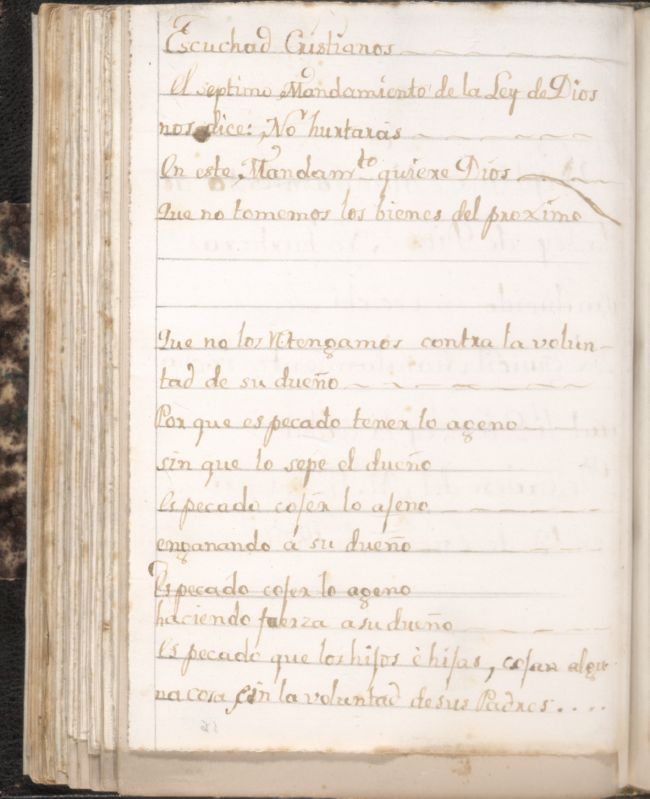 Escuchad Cristianos
El septimo Mandamiento de la Ley de Dios
nos dice: No hurtaras
En este Mandamto quiere Dios
Que no tomemos los bienes del proximo
Que no los retengamos contra la volun-
tad de su dueño
Por que es pecado tener lo ageno
sin que lo sepe el dueño
Es pecado cojér lo ajeno
enganando á su dueño
Es pecado cojer lo ageno
haciendo fuerza a su dueño
Es pecado que los hijos è hijas, cojan algu-
na cosa sin la voluntad de sus Padres....